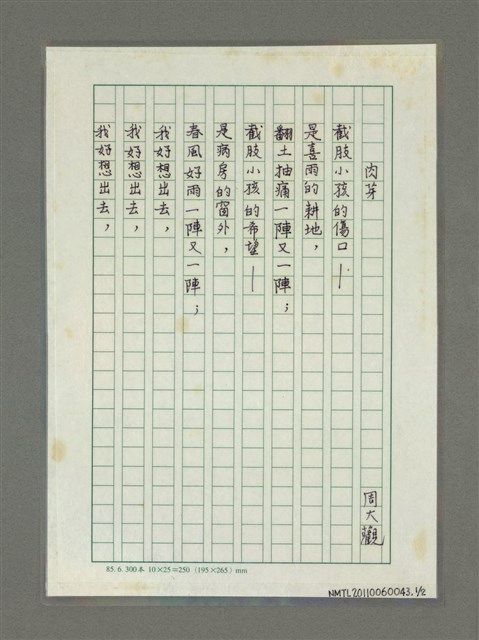 肉芽
周大觀
截肢小孩的傷口—
是喜雨的耕地，
翻土抽痛一陣又一陣；
截肢小孩的希望—
是病房的窗外，
春風好雨一陣又一陣；
我好想出去，
我好想出去，
我好想出去，
85.6.300本 10×25=250 (195×265) mm
NMTL20110060043.1/2